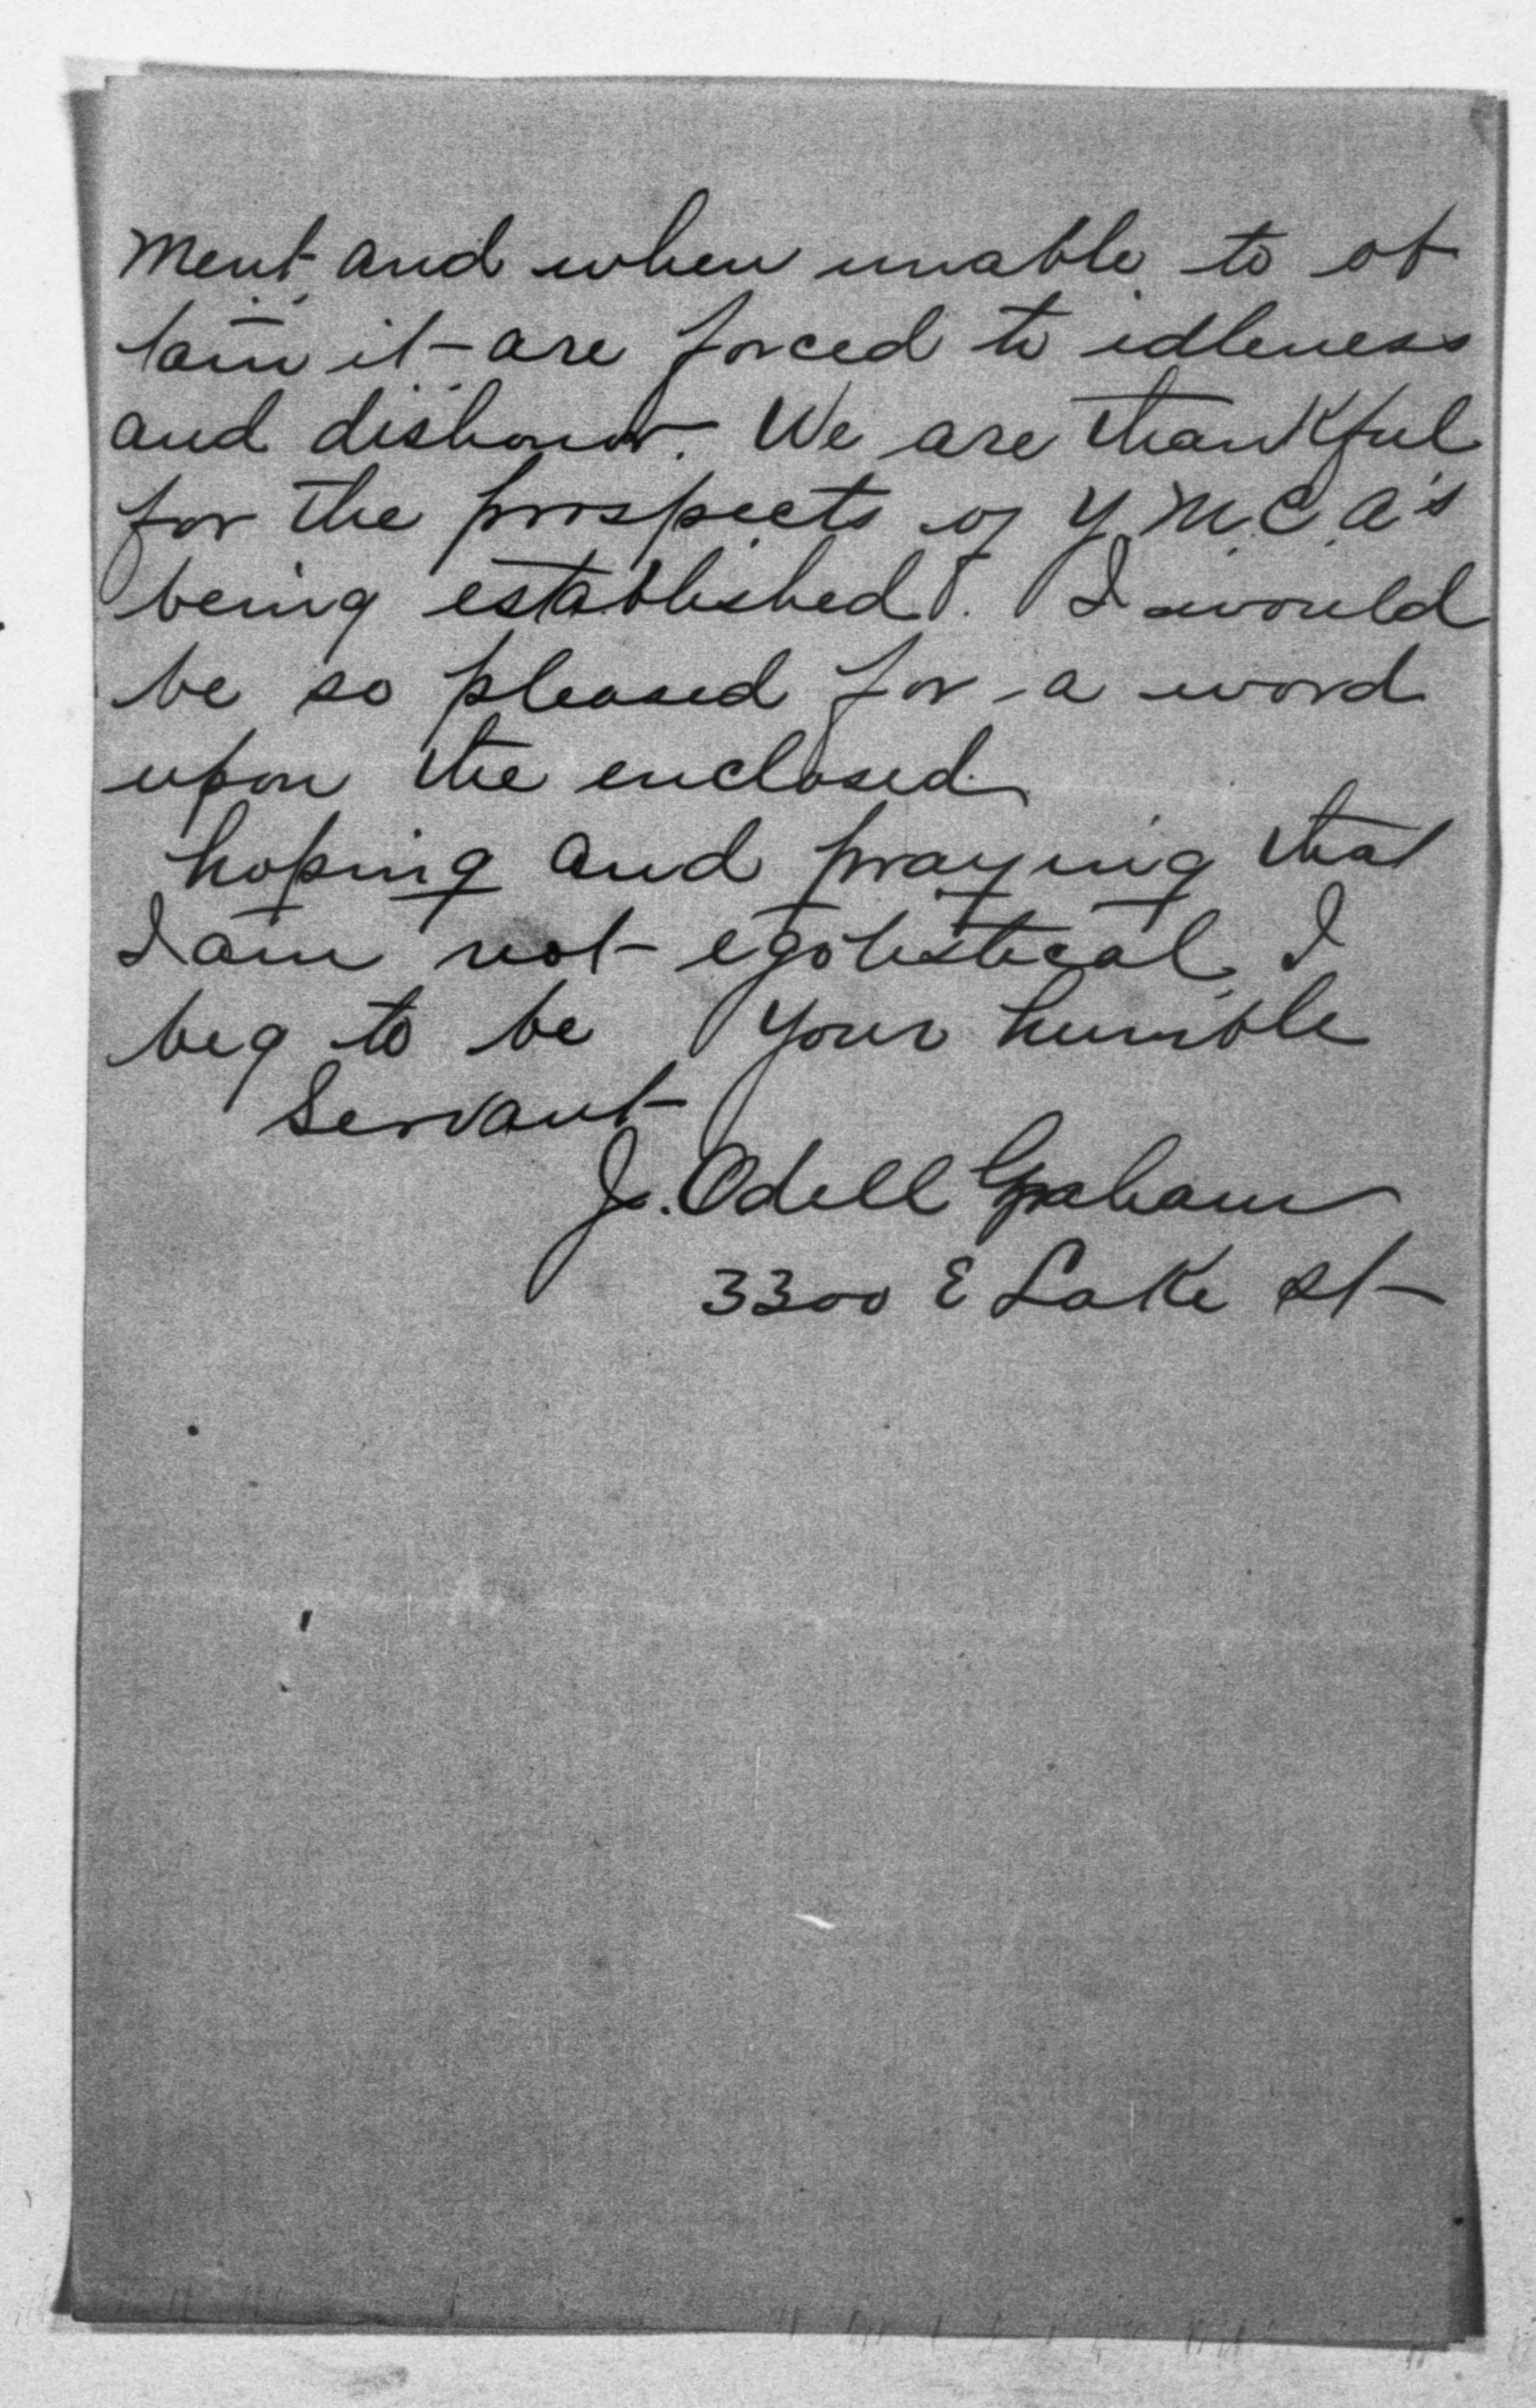 ment and when unable to ob
tain it are forced to idleness
and dishonor. We are thankful
for the prospects of Y.M.C.A's
being established. I would
be so pleased for a word
upon the enclosed.
hoping and praying that
I am not egotistical, I
beg to be Your humble
Servant
J. Odell Graham
3300 E Lake st